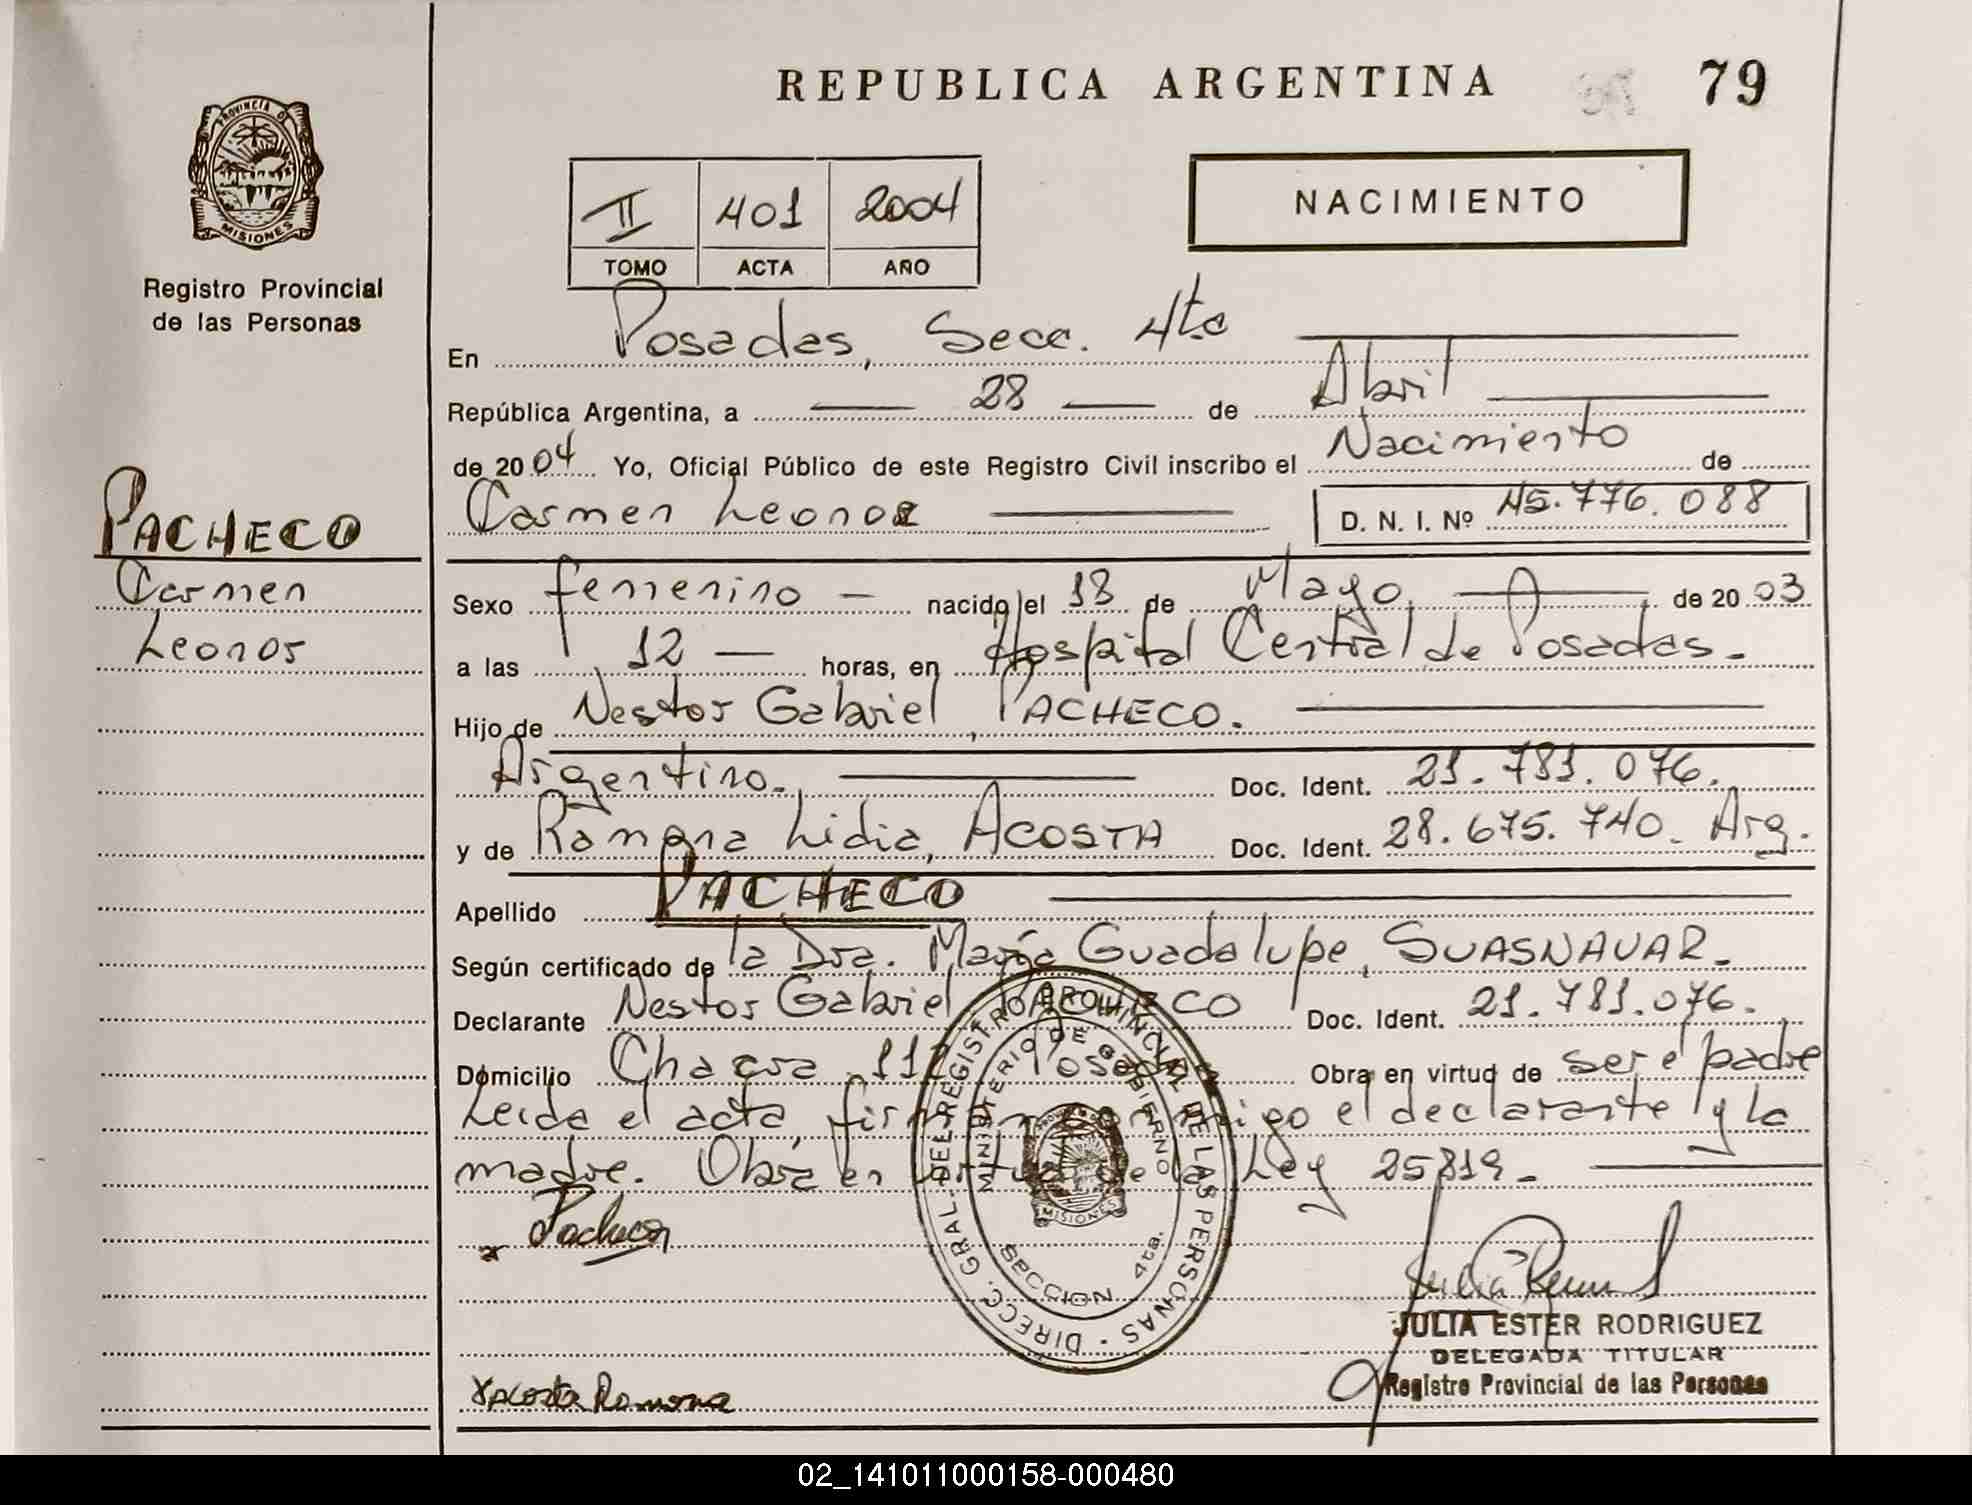 REPUBLICA ARGENTINA 79
PROVINCIA DE MISIONES
Registro Provincial
de las Personas
II 401 2004
TOMO ACTA AÑO
NACIMIENTO
En Posadas, Secc. 4ta
República Argentina, a 28 de Abril
de 2004 Yo, Oficial Público de este Registro Civil inscribo el Nacimiento de
Carmen Leonor D. N. I. Nº 45.776.088
PACHECO
Carmen
Leonor
Sexo femenino nacido el 18 de Mayo de 2003
a las 12 horas, en Hospital Central de Posadas.
Hijo de Nestor Gabriel, PACHECO.
Argentino. Doc. Ident. 21.781.076.
y de Ramona Lidia, ACOSTA Doc. Ident. 28.675.740. Arg.
Apellido PACHECO
Según certificado de la Dra. María Guadalupe, SUASNAVAR.
Declarante Nestor Gabriel PACHECO Doc. Ident. 21.781.076.
Domicilio Chacra 112 Posadas Obra en virtud de ser el padre
Leida el acta, firman conmigo el declarante y la
madre. Obra en virtud de la Ley 25819.
Pacheco
DIRECC. GRAL. DEL REGISTRO PROVINCIAL DE LAS PERSONAS
MINISTERIO DE GOBIERNO
MISIONES
SECCION 4ta.
JULIA ESTER RODRIGUEZ
DELEGADA TITULAR
Registro Provincial de las Personas
Acosta Ramona
02_141011000158-000480